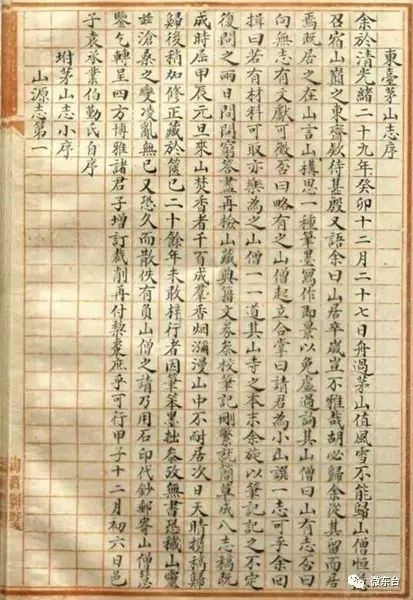 東臺茅山志序
余於清光緒二十九年癸卯十二月二十七日舟過茅山值風雪不能歸山僧恒
召宿山巖之東齋欵待甚殷又語余曰山居卒歲豈不雅哉胡必歸余從其留而居
焉既居之在山言山構思一種筆墨寫作即景以免虛過詢其山僧曰山有志否曰
向無志有文獻可徵否曰略有之山僧起立合掌曰請君為小山譔一志可乎余回
揖曰若有材料可取亦樂為之山僧一一道其山寺之本末余旋以筆記記之不定
復問之兩日問問窮答盡再檢山藏典籍文券叅校筆記刪繁就簡草成八志稿既
成時屆甲辰元旦來山焚香者千百成羣香烟瀰漫山中不耐居次日天晴攜稿歸
歸後稍加修正藏於篋已二十餘年未敢梓行者因筆笨墨拙叅攷無書恐穢山靈
茲滄桑之變凌亂無已又恐久而散佚有負山僧之請乃用石印代鈔郵寄山僧慧
鑒乞轉呈四方博雅諸君子增訂裁削再付棃棗庶乎可行甲子十二月初六日邑
子袁承業伯勤氏自序
坿茅山志小序
山源志第一
微东台